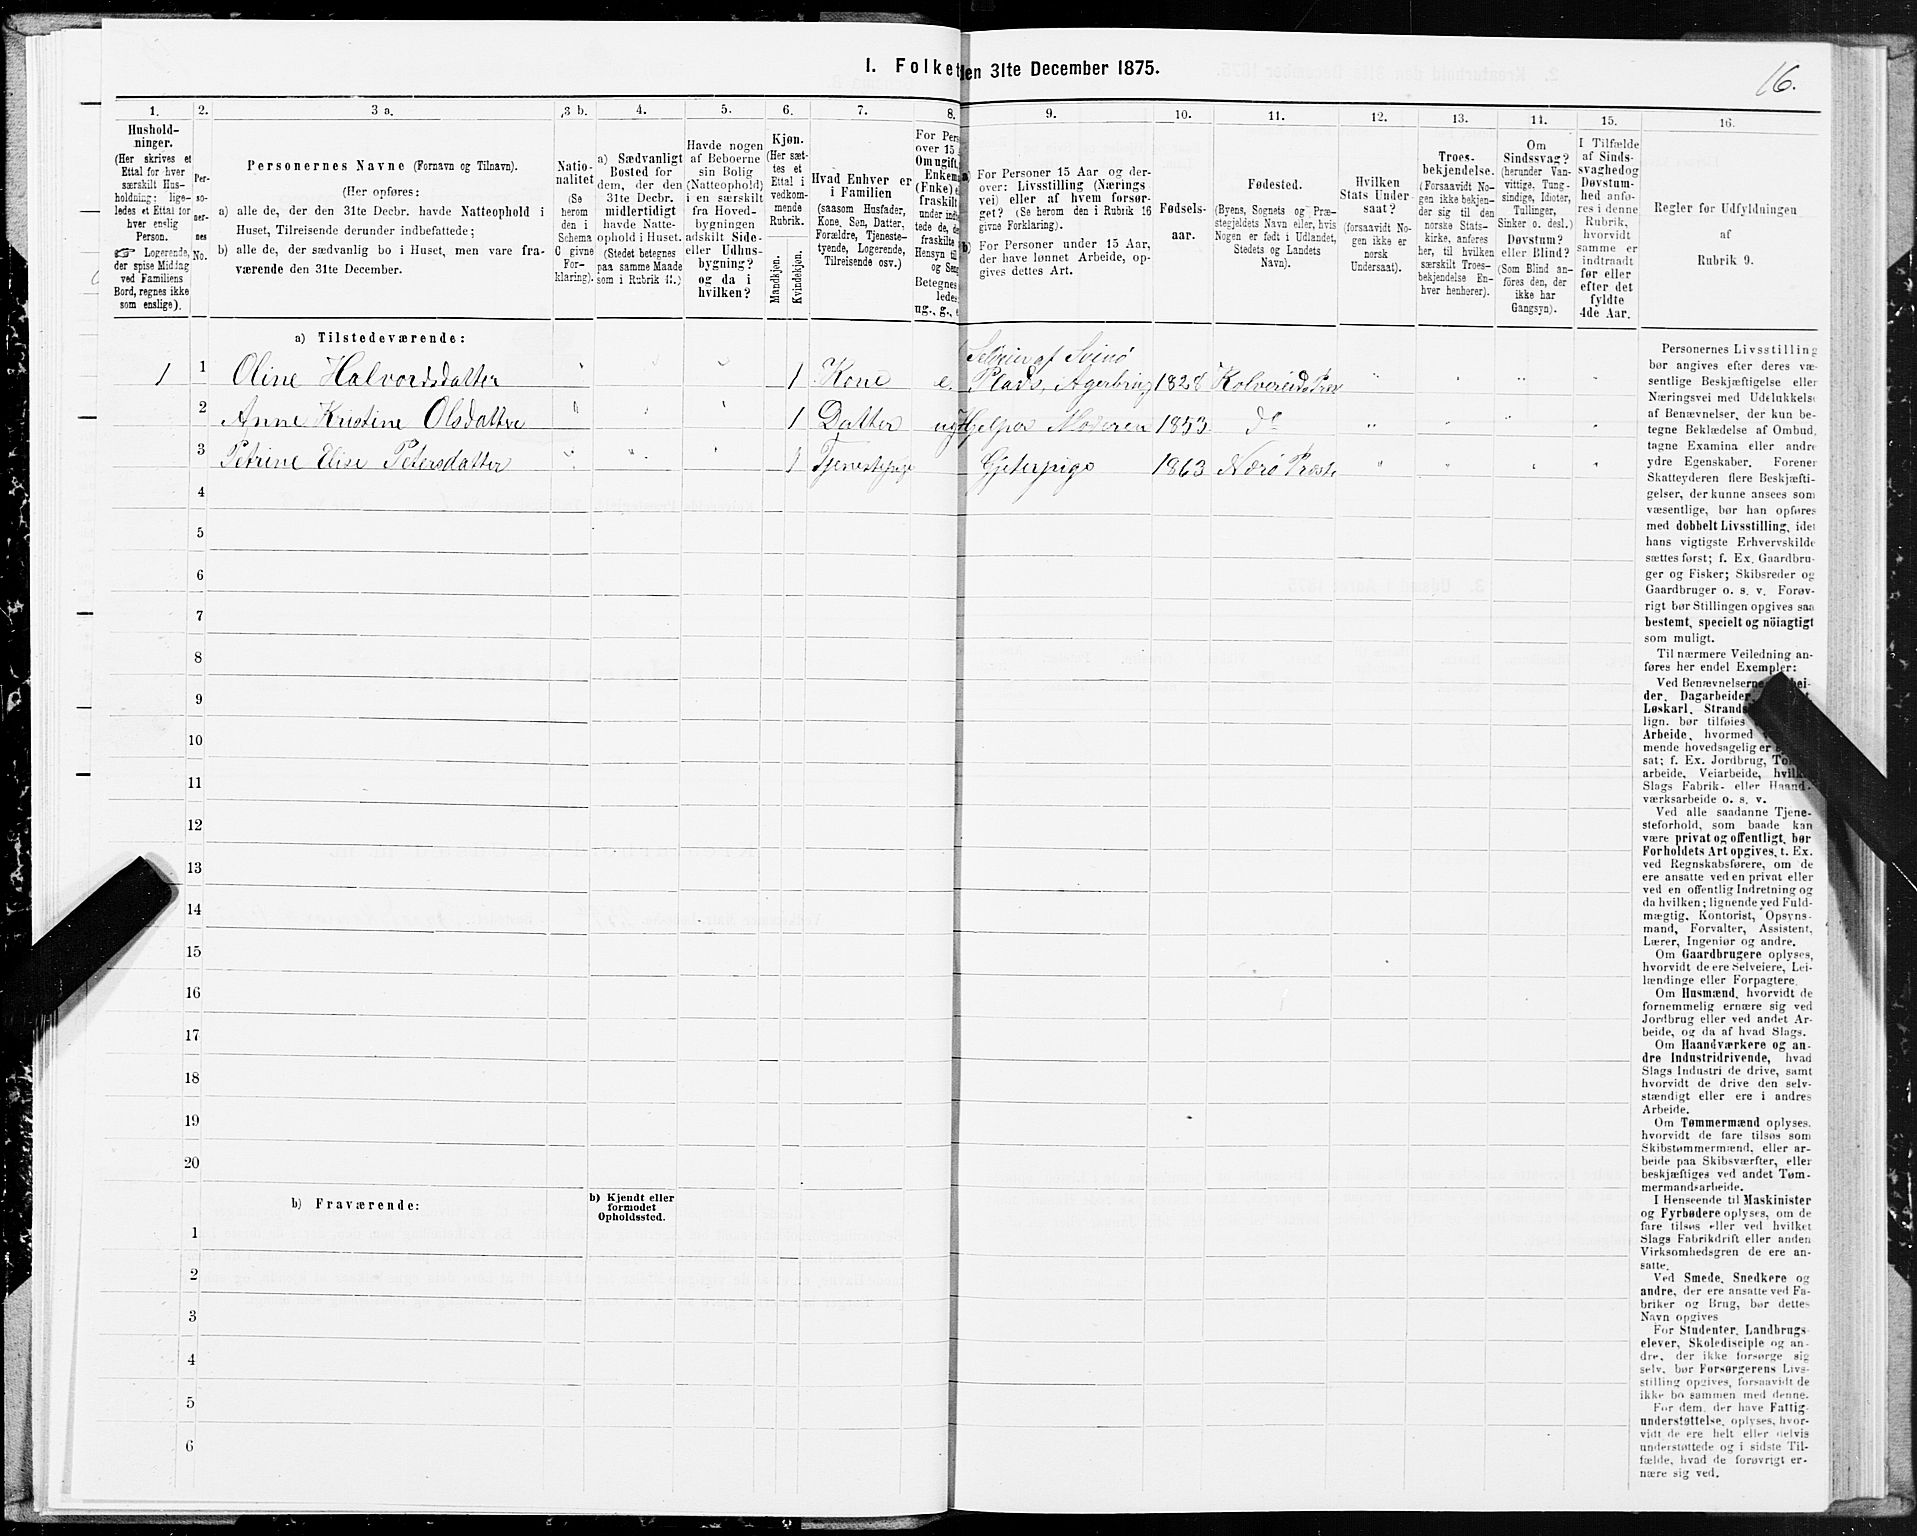 I. Folket
den 31te December 1875.
16.
1.
2.
3 a.
3 b.
4.
5.
6.
7.
8.
9.
10.
11.
12.
13.
14.
15.
16.
Hushold-
ninger.
(Her skrives et
Ettal for hver
særskilt Hus-
holdning; lige-
ledes et Ettal for
hver enslig
Person.
☞ Logerende,
der spise Middag
ved Familiens
Bord, regnes ikke
som enslige).
Per-
so-
ner-
nes
No.
Personernes Navne (Fornavn og Tilnavn).
(Her opføres:
a) alle de, der den 31te Decbr. havde Natteophold i
Huset, Tilreisende derunder indbefattede;
b) alle de, der sædvanlig bo i Huset, men vare fra-
værende den 31te December.
Natio-
nalitet
(Se
herom
den i
Schema
6 givne
For-
klaring).
a) Sædvanligt
Bosted for
dem, der den
31te Decbr.
midlertidigt
havde Natte-
ophold i Huset.
(Stedet betegnes
paa samme Maade
som i Rubrik 11.)
Havde nogen
af Beboerne
sin Bolig
(Natteophold)
i en særskilt
fra Hoved-
bygningen
adskilt Side-
eller Udhus-
bygning?
og da i
hvilken?
Kjøn.
(Her sæt-
tes et
Ettal i
vedkom-
mende
Rubrik.
Mandkjøn.
Kvindekjøn.
Hvad Enhver er
i Familien
(saasom Husfader,
Kone, Søn, Datter,
Forældre, Tjeneste-
tyende, Logerende,
Tilreisende osv.)
For Pers
over 15
Om ugift,
Enkem
(Enke) e
fraskilt
under indt
tede de, de
fraskilte
Hensyn til
og Seng
Betegnes
ledes
ug., g., e
a) For Personer 15 Aar og der-
over: Livsstilling (Nærings
vei) eller af hvem forsør-
get? (Se herom den i Rubrik 16
givne Forklaring).
b) For Personer under 15 Aar,
der have lønnet Arbeide, op-
gives dettes Art.
Fødsels-
aar.
Fødested.
(Byens, Sognets og Præ-
stegjeldets Navn eller, hvis
Nogen er født i Udlandet,
Stedets og Landets
Navn).
Hvilken
Stats Under
saat?
(forsaavidt No-
gen ikke er
norsk
Undersaat).
Troes-
bekjendelse.
(Forsaavidt No-
gen ikke bekjen-
der sig til den
norske Stats-
kirke, anføres
her, til hvilken
særskilt Troes-
bekjendelse En-
hver henhører).
Om
Sindssvag?
(herunder Van-
vittige, Tung-
sindige, Idioter,
Tullinger,
Sinker o. desl.)
Døvstum?
eller Blind?
(Som Blind an-
føres den, der
ikke har
Gangsyn).
I Tilfælde
af Sinds-
svaghed og
Døvstum-
hed anfø-
res i denne
Rubrik,
hvorvidt
samme er
indtraadt
før eller
efter det
fyldte
4de Aar.
Regler for Udfyldningen
af
Rubrik 9.
a) Tilstedeværende:
Selveier af Svinø
1 1 Oline Halvordsdatter " " " 1 Kone e. Plads, Agerbrug 1828 Kolvereids Præs " " " "
2 Anne Kristine Olsdatter " " " 1 Datter ug Hjelper Moderen 1853 do " " " "
3 Petrine Elise Petersdatter " " " 1 Tjenestepige Gjeterpige 1863 Nærø Præste " " " "
4
5
6
7
8
9
10
11
12
13
14
15
16
17
18
19
20
b) Fraværende:
b) Kjendt eller
formodet
Opholdssted.
1
2
3
4
5
6
Personernes Livsstilling
bør angives efter deres væ-
sentlige Beskjæftigelse eller
Næringsvei med Udelukkelse
af Benævnelser, der kun be-
tegne Beklædelse af Ombud,
tagne Examina eller andre
ydre Egenskaber. Forener
Skatteyderen flere Beskjæfti-
gelser, der kunne ansees som
væsentlige, bør han opføres
med dobbelt Livsstilling, idet
hans vigtigste Erhvervskilde
sættes først; f. Ex. Gaardbru-
ger og Fisker; Skibsreder og
Gaardbruger o. s. v. Forøv-
rigt bør Stillingen opgives saa
bestemt, specielt og nöiagtigt
som muligt.
Til nærmere Veiledning an-
føres her endel Exempler:
Ved Benævnelserne
der, Dagarbeider,
Løskarl, Strands
lign. bør tilføies
Arbeide, hvormed
mende hovedsagelig er
sat; f. Ex. Jordbrug,
arbeide, Veiarbeide,
Slags Fabrik- eller Haand-
værksarbeide o. s. v.
Ved alle saadanne Tjene-
steforhold, som baade kan
være privat og offentligt, bør
Forholdets Art opgives, t. Ex.
ved Regnskabsførere, om de
ere ansatte ved en privat eller
ved en offentlig Indretning og
da hvilken; lignende ved Fuld-
mægtig, Kontorist, Opsyns-
mand, Forvalter, Assistent,
Lærer, Ingeniør og andre.
Om Gaardbrugere oplyses,
hvorvidt de ere Selveiere, Lei-
lændinge eller Forpagtere.
Om Husmænd, hvorvidt de
fornemmelig ernære sig ved
Jordbrug eller ved andet Ar-
beide, og da af hvad Slags.
Om Haandværkere og an-
dre Industridrivende, hvad
Slags Industri de drive, samt
hvorvidt de drive den selv-
stændigt eller ere i andres
Arbeide.
Om Tømmermænd oplyses.
hvorvidt de fare tilsøs som
Skibstømmermænd, eller ar-
beide paa Skibsværfter, eller
beskjæftiges ved andet Tøm-
mermandsarbeide.
I Henseende til Maskinister
og Fyrbødere oplyses, om de
fare tilsøs eller ved hvilket
Slags Fabrikdrift eller anden
Virksomhedsgren de ere an-
satte.
Ved Smede, Snedkere og
andre, der ere ansatte ved Fa-
briker og Brug, bør dettes
Navn opgives
For Studenter, Landbrugs-
elever, Skoledisciple og an-
dre, der ikke forsørge sig
selv, bør Forsørgerens Livs-
stilling opgives, forsaavidt de
ikke bo sammen med denne.
For dem, der have Fattig-
understøttelse, oplyses, hvor-
vidt de ere helt eller delvis
understøttede og i sidste Til-
fælde, hvad de forøvrigt er-
nære sig ved.